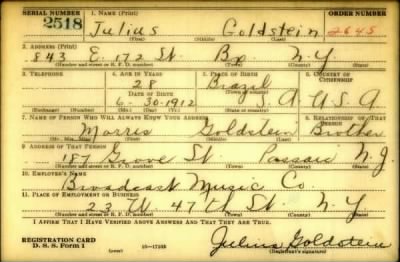 SERIAL NUMBER 1. NAME (Print) ORDER NUMBER
2518 Julius Goldstein 2645
(First) (Middle) (Last)
2. ADDRESS (Print)
843 E. 172 St. Bx. N.Y.
(Number and street or R. F. D. number) (Town) (County) (State)
3. TELEPHONE 4. AGE IN YEARS 5. PLACE OF BIRTH 6. COUNTRY OF CITIZENSHIP
28 Brazil
DATE OF BIRTH (Town or county)
6-30-1912 S.A. U.S.A
(Exchange) (Number) (Mo.) (Day) (Yr.) (State or country)
7. NAME OF PERSON WHO WILL ALWAYS KNOW YOUR ADDRESS 8. RELATIONSHIP OF THAT PERSON
Morris Goldstein Brother
(Mr., Mrs., Miss) (First) (Middle) (Last)
9. ADDRESS OF THAT PERSON
187 Grove St. Passaic N.J.
(Number and street or R. F. D. number) (Town) (County) (State)
10. EMPLOYER'S NAME
Broadcast Music Co.
11. PLACE OF EMPLOYMENT OR BUSINESS
23 W. 47th St. N.Y.
(Number and street or R. F. D. number) (Town) (County) (State)
I AFFIRM THAT I HAVE VERIFIED ABOVE ANSWERS AND THAT THEY ARE TRUE.
REGISTRATION CARD
D. S. S. Form 1 16—17105 Julius Goldstein
(Registrant's signature)